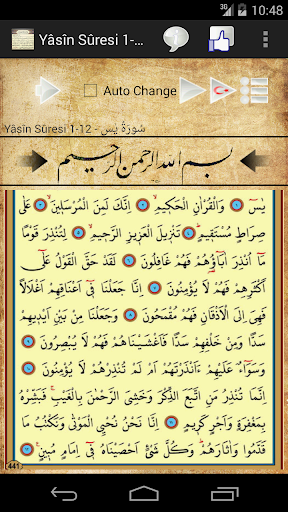 3G 10:48
Yâsîn Sûresi 1-...
Auto Change
Yâsîn Sûresi 1-12 - سُورَةُ يٰسٓ
بسم الله الرحمن الرحيم
يٰسٓ ﴿١﴾ وَالْقُرْاٰنِ الْحَكٖيمِ ﴿٢﴾ اِنَّكَ لَمِنَ الْمُرْسَلٖينَ ﴿٣﴾ عَلٰى
صِرَاطٍ مُسْتَقٖيمٍ ﴿٤﴾ تَنْزٖيلَ الْعَزٖيزِ الرَّحٖيمِ ﴿٥﴾ لِتُنْذِرَ قَوْمًا
مَٓا اُنْذِرَ اٰبَٓاؤُهُمْ فَهُمْ غَافِلُونَ ﴿٦﴾ لَقَدْ حَقَّ الْقَوْلُ عَلٰٓى
اَكْثَرِهِمْ فَهُمْ لَا يُؤْمِنُونَ ﴿٧﴾ اِنَّا جَعَلْنَا فٖٓى اَعْنَاقِهِمْ اَغْلَالًا
فَهِىَ اِلَى الْاَذْقَانِ فَهُمْ مُقْمَحُونَ ﴿٨﴾ وَجَعَلْنَا مِنْ بَيْنِ اَيْدٖيهِمْ
سَدًّا وَمِنْ خَلْفِهِمْ سَدًّا فَاَغْشَيْنَاهُمْ فَهُمْ لَا يُبْصِرُونَ ﴿٩﴾
وَسَوَٓاءٌ عَلَيْهِمْ ءَاَنْذَرْتَهُمْ اَمْ لَمْ تُنْذِرْهُمْ لَا يُؤْمِنُونَ ﴿١٠﴾
اِنَّمَا تُنْذِرُ مَنِ اتَّبَعَ الذِّكْرَ وَخَشِىَ الرَّحْمٰنَ بِالْغَيْبِ فَبَشِّرْهُ
بِمَغْفِرَةٍ وَاَجْرٍ كَرٖيمٍ ﴿١١﴾ اِنَّا نَحْنُ نُحْيِى الْمَوْتٰى وَنَكْتُبُ مَا
قَدَّمُوا وَاٰثَارَهُمْ وَكُلَّ شَیْءٍ اَحْصَيْنَاهُ فٖٓى اِمَامٍ مُبٖينٍ ﴿١٢﴾
(441)